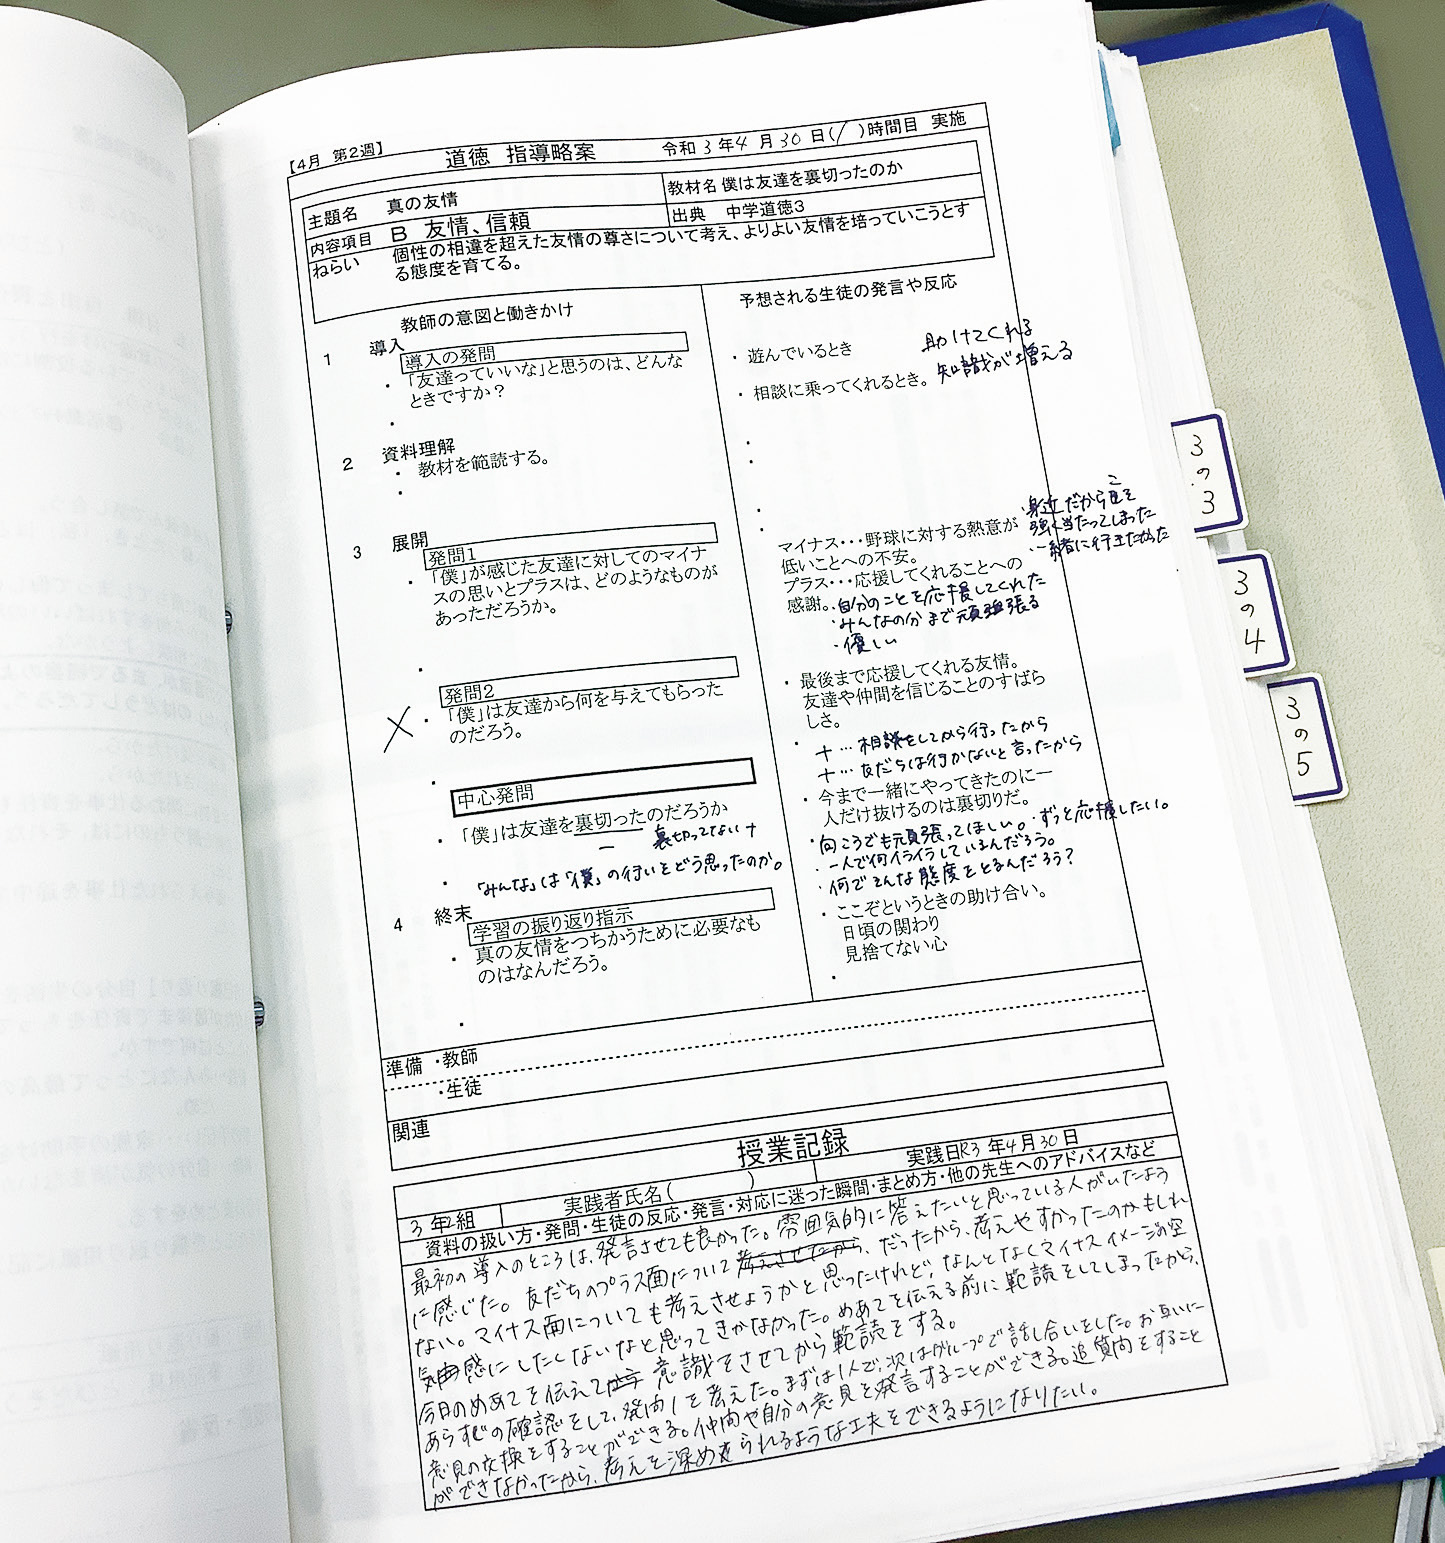 【4月 第2週】
道徳 指導略案
令和 3 年 4 月 30 日( / )時間目 実施
主題名 真の友情
教材名 僕は友達を裏切ったのか
内容項目 B 友情、信頼
出典 中学道徳3
ねらい 個性の相違を超えた友情の尊さについて考え、よりよい友情を培っていこうとす
る態度を育てる。
教師の意図と働きかけ
予想される生徒の発言や反応
1 導入
導入の発問
・「友達っていいな」と思うのは、どんな
ときですか？
・
・遊んでいるとき
助けてくれる
・相談に乗ってくれるとき。
知識が増える
2 資料理解
・教材を範読する。
・
3 展開
発問1
・「僕」が感じた友達に対してのマイナ
スの思いとプラスは、どのようなものが
あっただろうか。
マイナス・・・野球に対する熱意が
低いことへの不安。
プラス・・・応援してくれることへの
感謝。
・身近だからこそ
強く当たってしまった
・一緒に行きたかった
・自分のことを応援してくれた
・みんなの分まで頑張る
・優しい
発問2
×
・「僕」は友達から何を与えてもらった
のだろう。
・最後まで応援してくれる友情。
友達や仲間を信じることのすばら
しさ。
中心発問
・「僕」は友達を裏切ったのだろうか
裏切ってない＋
・「みんな」は「僕」の行いをどう思ったのか。
＋…相談をしてから行ったから
＋…友だちは行かないと言ったから
・今まで一緒にやってきたのに一
人だけ抜けるのは裏切りだ。
・向こうでも頑張ってほしい。・ずっと応援したい。
・一人で何イライラしているんだろう。
・何でそんな態度をとるんだろう？
4 終末
学習の振り返り指示
・真の友情をつちかうために必要なも
のはなんだろう。
・ここぞというときの助け合い。
日頃の関わり
見捨てない心
準備 ・教師
・生徒
関連
授業記録
3 年 2 組
実践者氏名( )
実践日R3 年 4 月 30 日
資料の扱い方・発問・生徒の反応・発言・対応に迷った瞬間・まとめ方・他の先生へのアドバイスなど
最初の導入のところは、発言させても良かった。雰囲気的に答えたいと思っている人がいたよう
に感じた。友だちのプラス面について考えさせたから、だったから、考えやすかったのかもしれ
ない。マイナス面についても考えさせようかと思ったけれど、なんとなくマイナスイメージの空
気感にしたくないなと思ってきかなかった。めあてを伝える前に範読をしてしまったから、
今日のめあてを伝えて 意識をさせてから範読をする。
あらすじの確認をして、発問1を考えた。まずは1人で、次はグループで話し合いをした。お互いに
意見の交換をすることができる。仲間や自分の意見を発言することができる。追質問をすること
ができなかったから、考えを深められるような工夫をできるようになりたい。
3の3
3の4
3の5